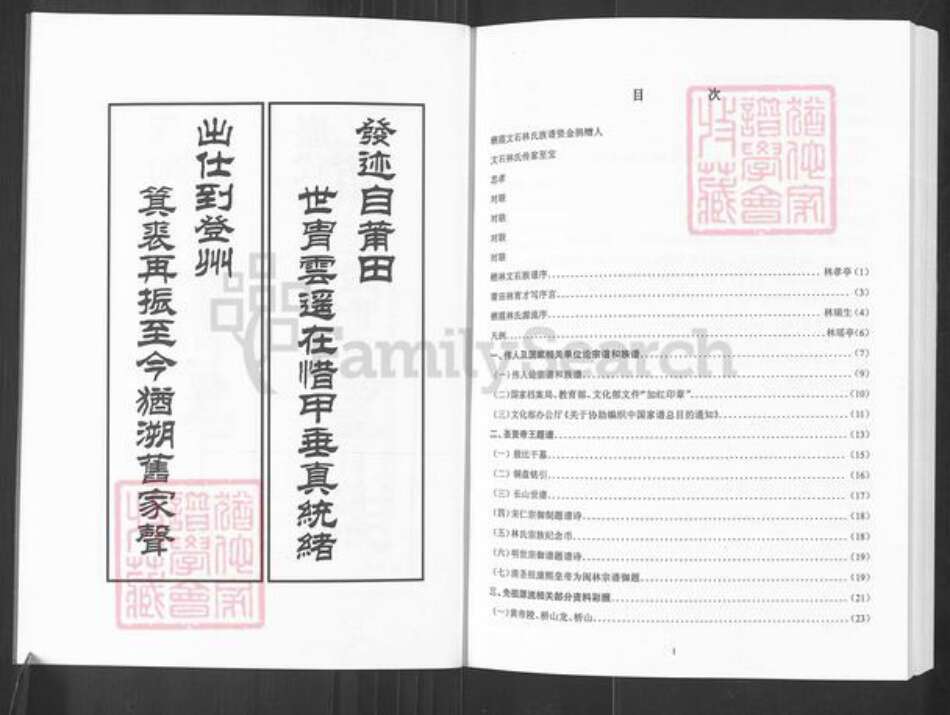 發迹自莆田
世胄雲遥在惜甲垂真統緒
出仕到登州
箕裘再振至今猶溯舊家聲
目 次
栖霞文石林氏族谱资金捐赠人
文石林氏传家至宝
忠孝
对联
对联
对联
对联
栖林文石族谱序 林孝亭(1)
莆田林育才写序言 (3)
栖霞林氏源流序 林瑞生(4)
凡例 林瑶亭(6)
一、伟人及国家相关单位论宗谱和族谱 (7)
(一)伟人论宗谱和族谱 (9)
(二)国家档案局、教育部、文化部文件“加红印章” (10)
(三)文化部办公厅《关于协助编织中国家谱总目的通知》 (11)
二、圣贤帝王题谱 (13)
(一)殷比干墓 (15)
(二)铜盘铭引 (16)
(三)长山世谱 (17)
(四)宋仁宗御制题谱诗 (18)
(五)林氏宗族纪念币 (18)
(六)明世宗御谱题谱诗 (19)
(七)清圣祖康熙皇帝为闽林宗谱御题 (19)
三、先祖源流相关部分资料彩照 (21)
(一)黄帝陵、桥山龙、桥山 (23)
1
猶他家
譜學會
收藏
猶他家
譜學會
收藏
FamilySearch